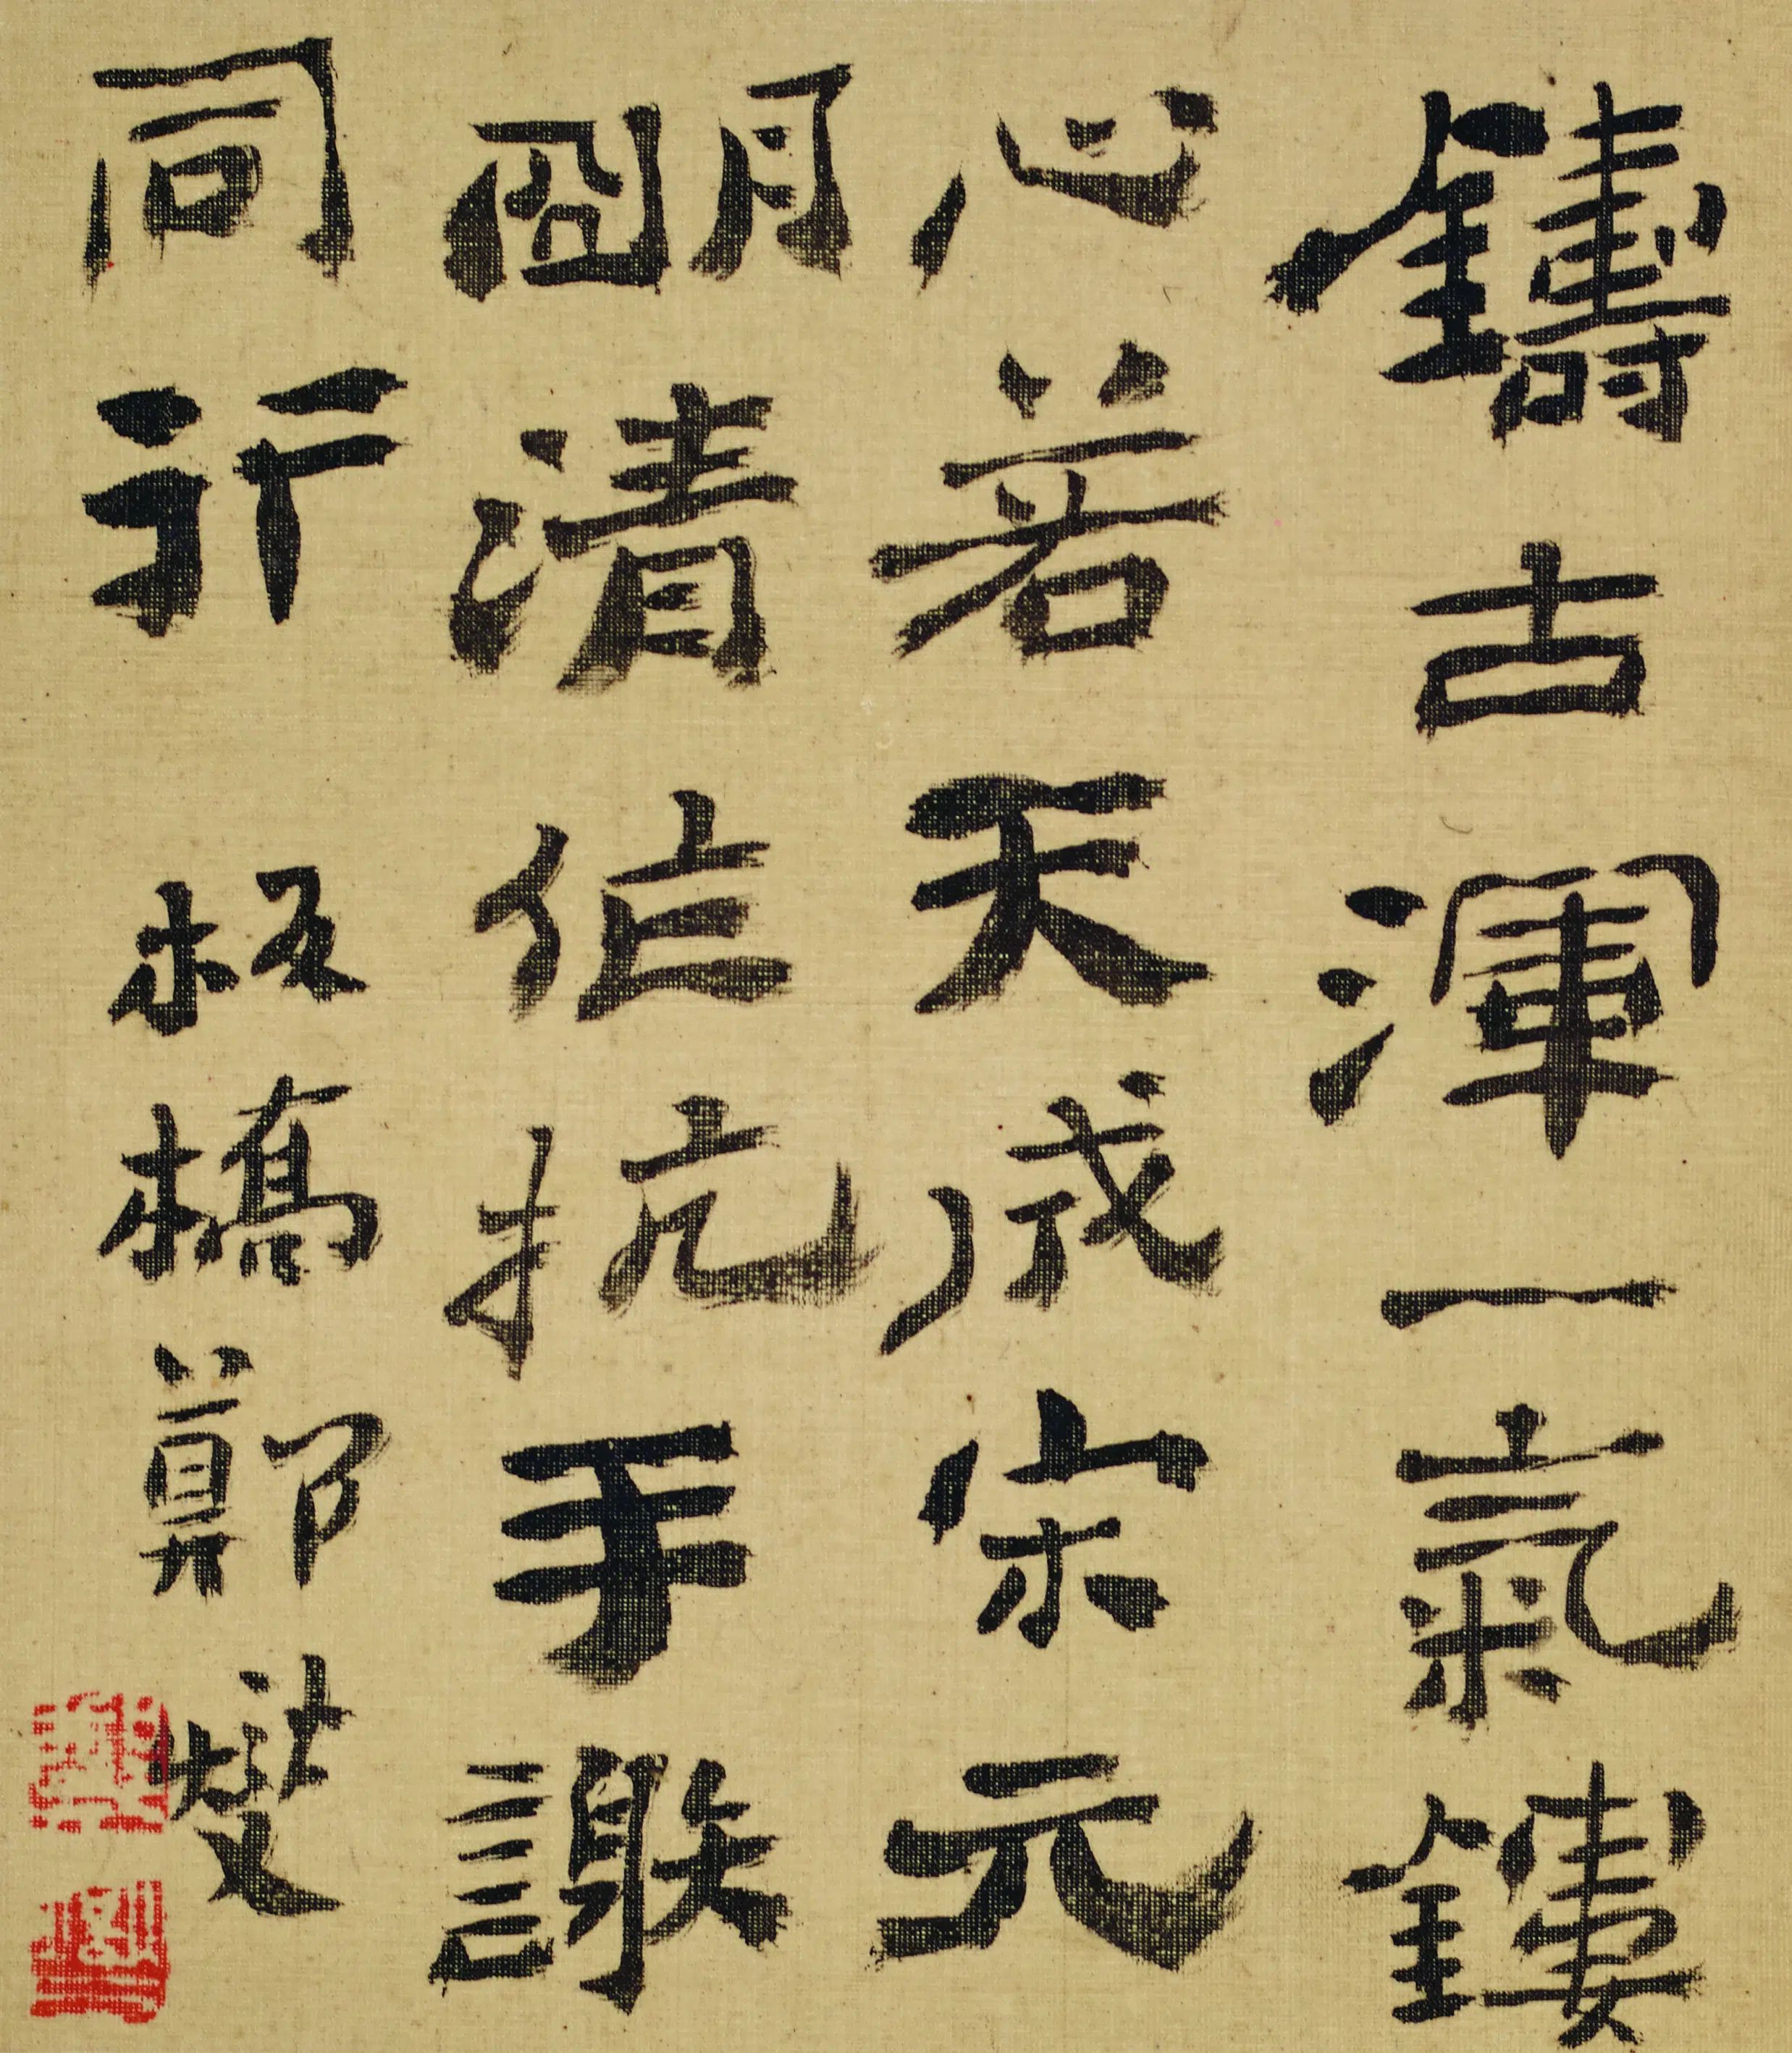 鑄古渾一氣鏤
心若天成宋元
明清信抗手謝
同行
板橋鄭燮